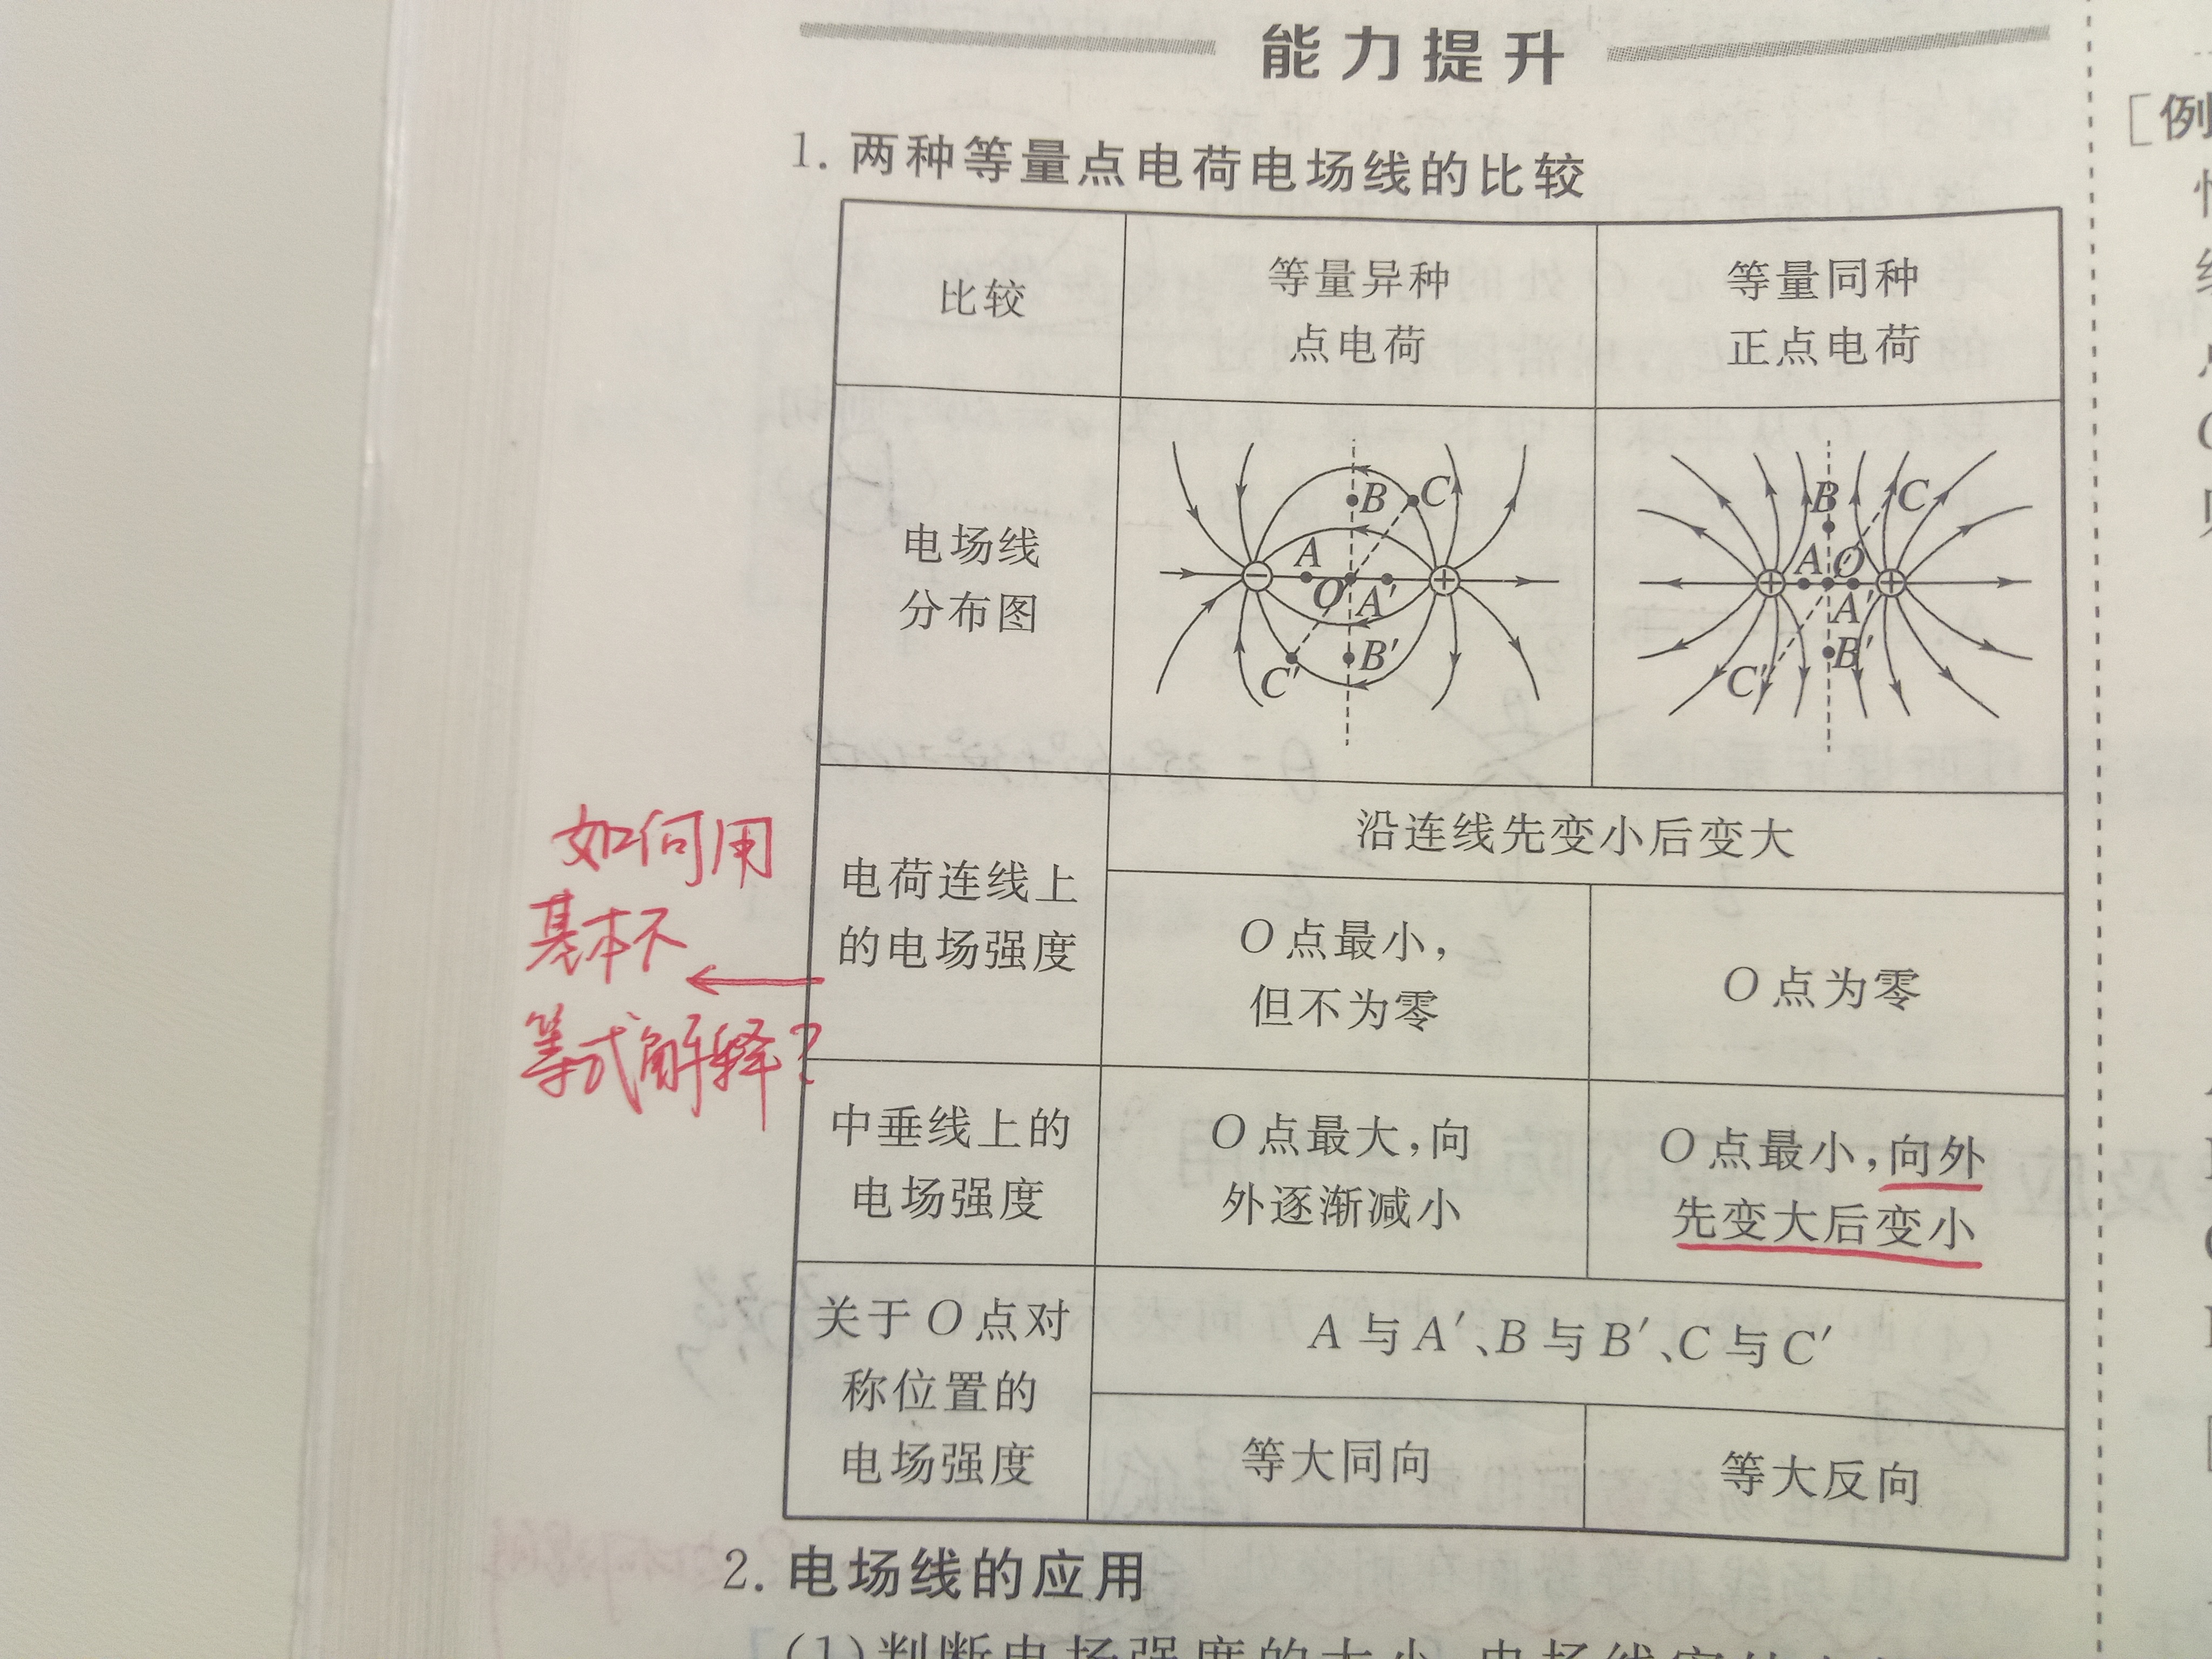 能力提升
[例
1. 两种等量点电荷电场线的比较
比较
等量异种
点电荷
等量同种
正点电荷
电场线
分布图
B
C
A
O
A′
B′
C′
B
C
A
O
A′
B′
C′
如何用
基本不
等式解释?
电荷连线上
的电场强度
沿连线先变小后变大
O点最小,
但不为零
O点为零
中垂线上的
电场强度
O点最大,向
外逐渐减小
O点最小,向外
先变大后变小
关于O点对
称位置的
电场强度
A与A′、B与B′、C与C′
等大同向
等大反向
2. 电场线的应用
(1)判断电场强度的大小